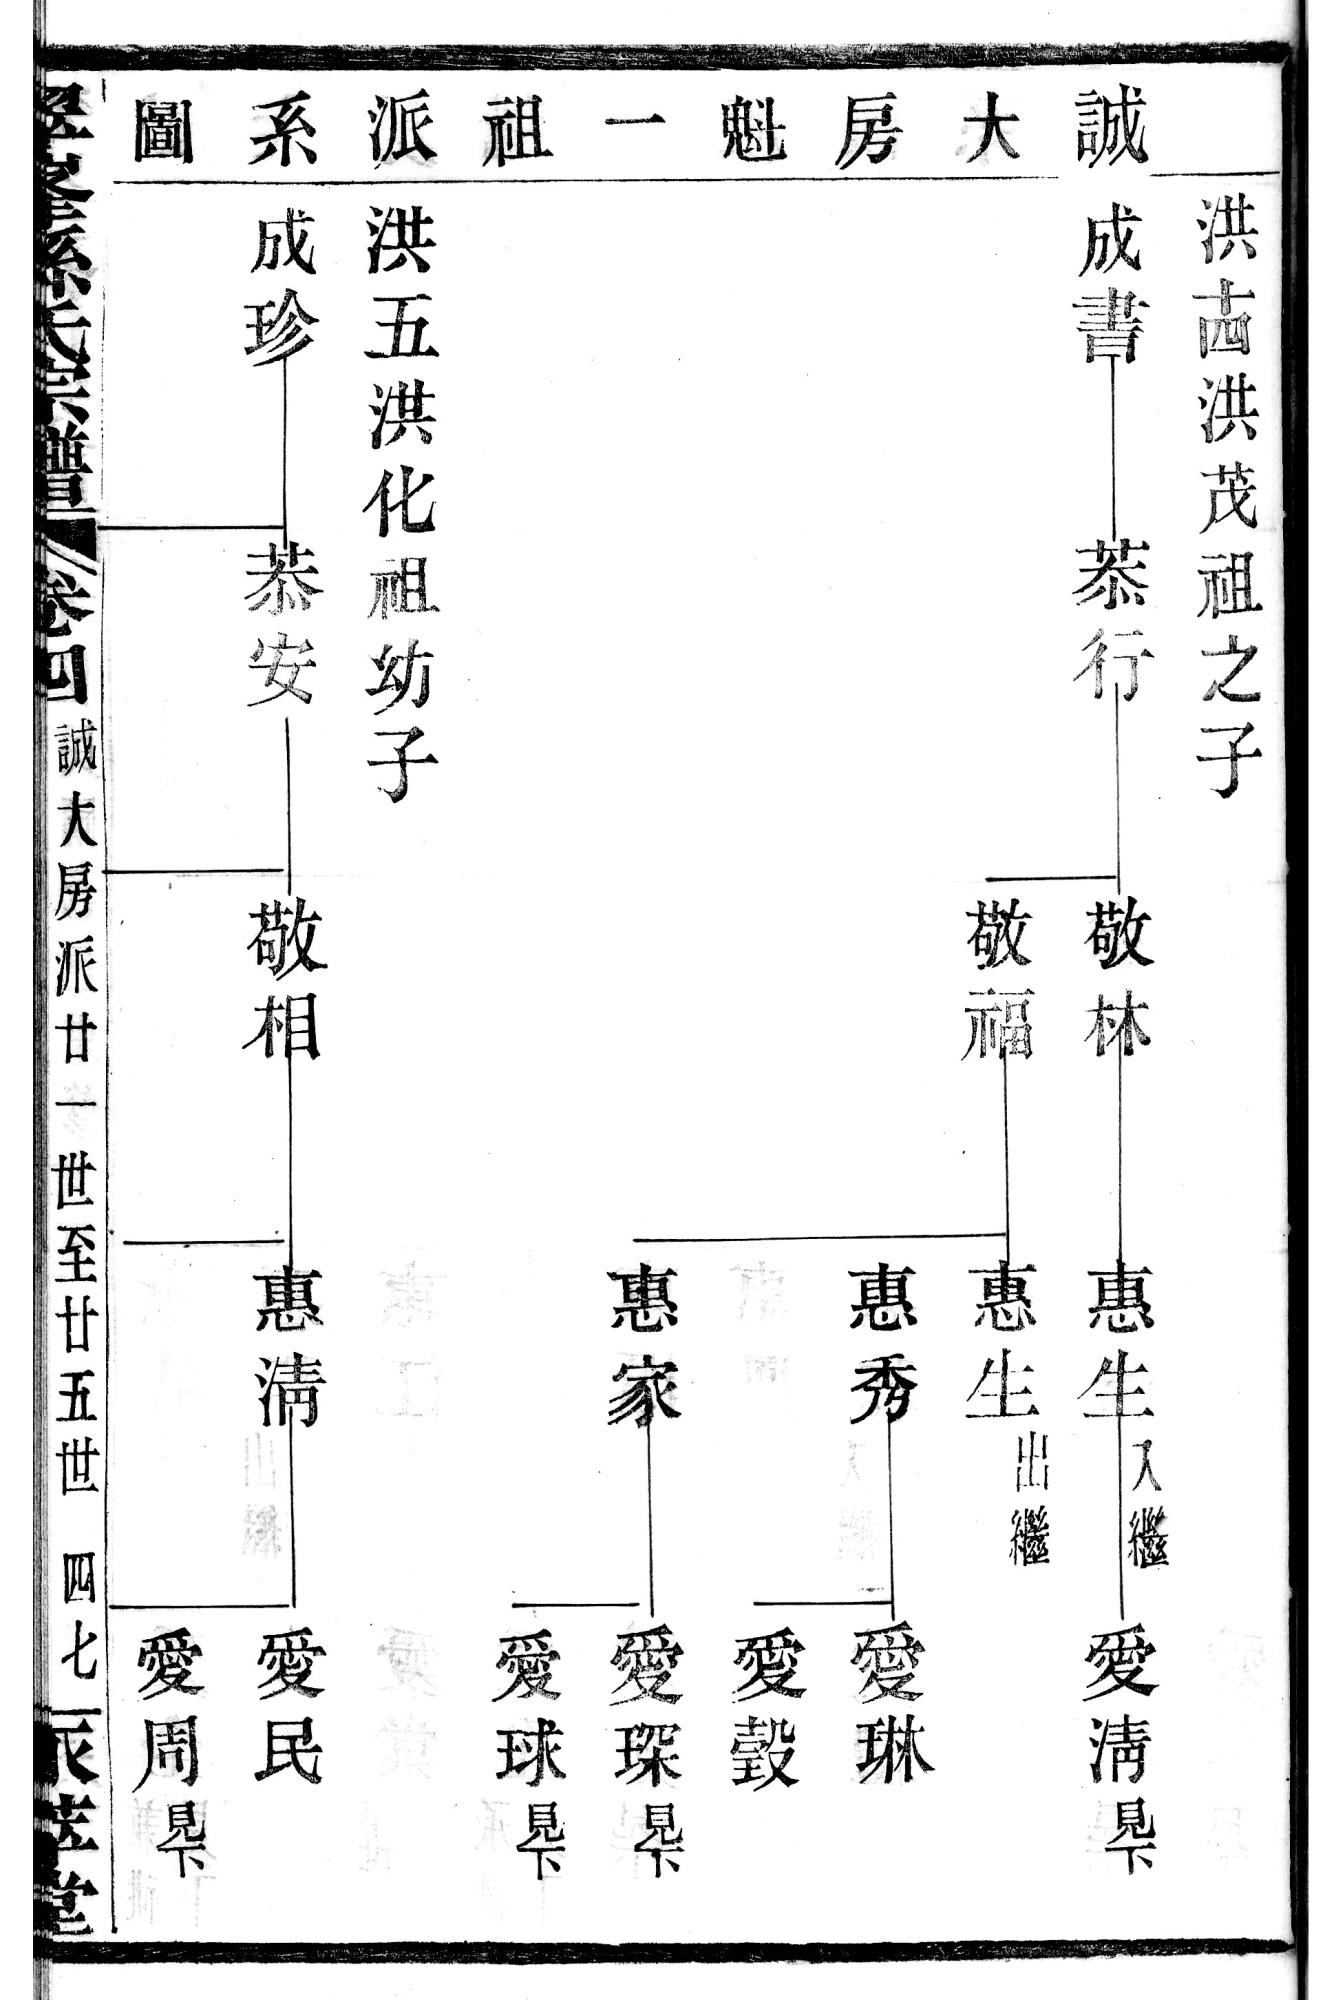 誠大房魁一祖派系圖
洪十四洪茂祖之子
成書
恭行
敬林
惠生入繼
愛淸見下
敬福
惠生出繼
惠秀
愛琳
愛瑴
惠家
愛琛見下
愛球見下
洪五洪化祖幼子
成珍
恭安
敬相
惠淸
愛民
愛周見下
孫氏宗譜
卷四
誠大房派廿一世至廿五世
四七
堂